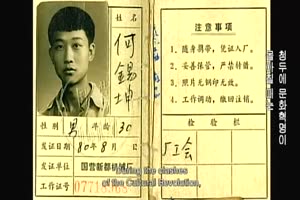 姓名
何錫坤
性別 男 年龄 30
发证日期 80年8月
发证单位 国营新都机械厂
工作证号
注意事项
1. 随身携带，凭证入厂。
2. 妥善保管，严禁转借。
3. 照片无钢印无效。
4. 工作调动，缴回注销。
检验栏
工会
During the clashes
of the Cultural Revolution,
청두에 문화혁명이